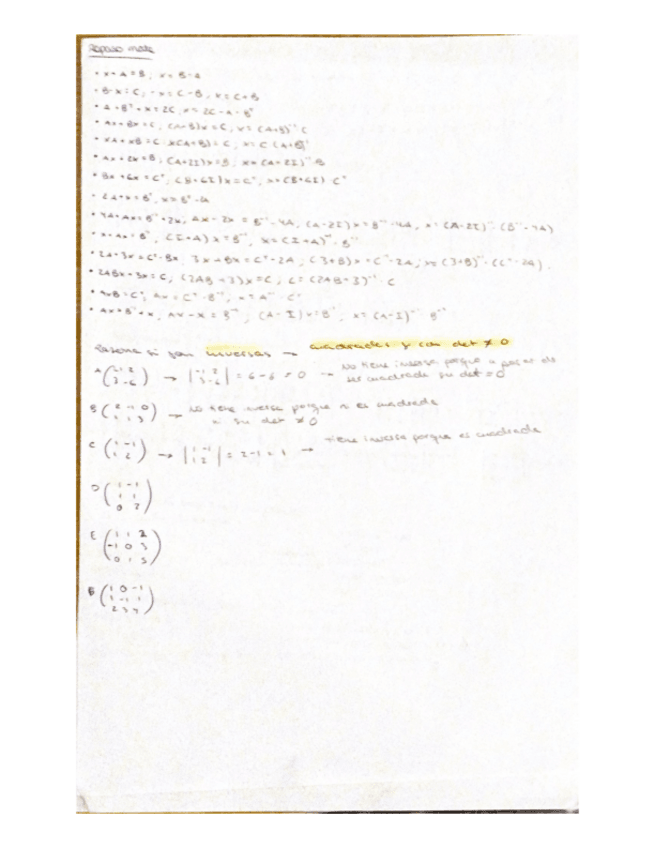 Repaso mate
• X+A=B; X=B-A
• B-X=C; -X=C-B; X=C+B
• A+Bᵗ+X=2C; X=2C-A-Bᵗ
• AX+BX=C; (A+B)X=C; X=(A+B)⁻¹·C
• XA+XB=C; X(A+B)=C; X=C·(A+B)⁻¹
• AX+2X=B; (A+2I)X=B; X=(A+2I)⁻¹·B
• BX+6X=Cᵗ; (B+6I)X=Cᵗ; X=(B+6I)⁻¹·Cᵗ
• 4A+AX=B⁻¹+2X; AX-2X=B⁻¹-4A, (A-2I)X=B⁻¹-4A, X=(A-2I)⁻¹·(B⁻¹-4A)
• X+AX=B⁻¹, (I+A)X=B⁻¹, X=(I+A)⁻¹·B⁻¹
• 2ABX+3X=C; (2AB+3)X=C; C=(2AB+3)⁻¹·C
• AX=B⁻¹+X, AX-X=B⁻¹, (A-I)X=B⁻¹, X=(A-I)⁻¹·B⁻¹
Razona si son inversas → cuadradas y con det ≠ 0
A (-1 2 / 3 -6) → |-1 2 / 3 -6| = 6-6=0 → No tiene inversa porque a pesar de
ser cuadrada su det=0
B (2 -1 0 / 1 1 3) → No tiene inversa porque n es cuadrada
n su det ≠ 0
C (1 -1 / 1 2) → |1 -1 / 1 2| = 2-1=1 → tiene inversa porque es cuadrada
D (1 -1 / 1 1 / 0 2)
E (1 1 2 / -1 0 3 / 0 1 5)
(1 0 -1 / 1 -1 1 / 2 3 4)